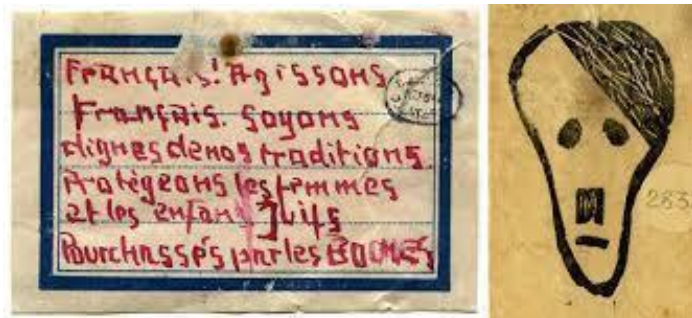 Français! Agissons
Français. Soyons
dignes de nos traditions.
Protégeons les femmes
et les enfans Juifs
Pourchassés par les BOCHES
283